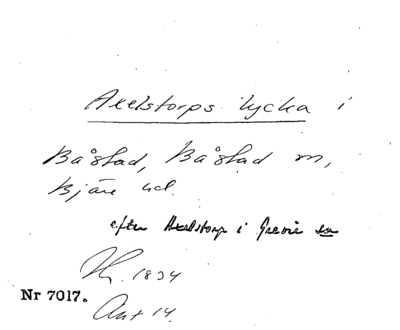 Axelstorps lycka i
Båstad, Båstad sn,
Bjäre hd.
efter Axelstorp i Grevie sn
1834
Nr 7017.
Ant 14.